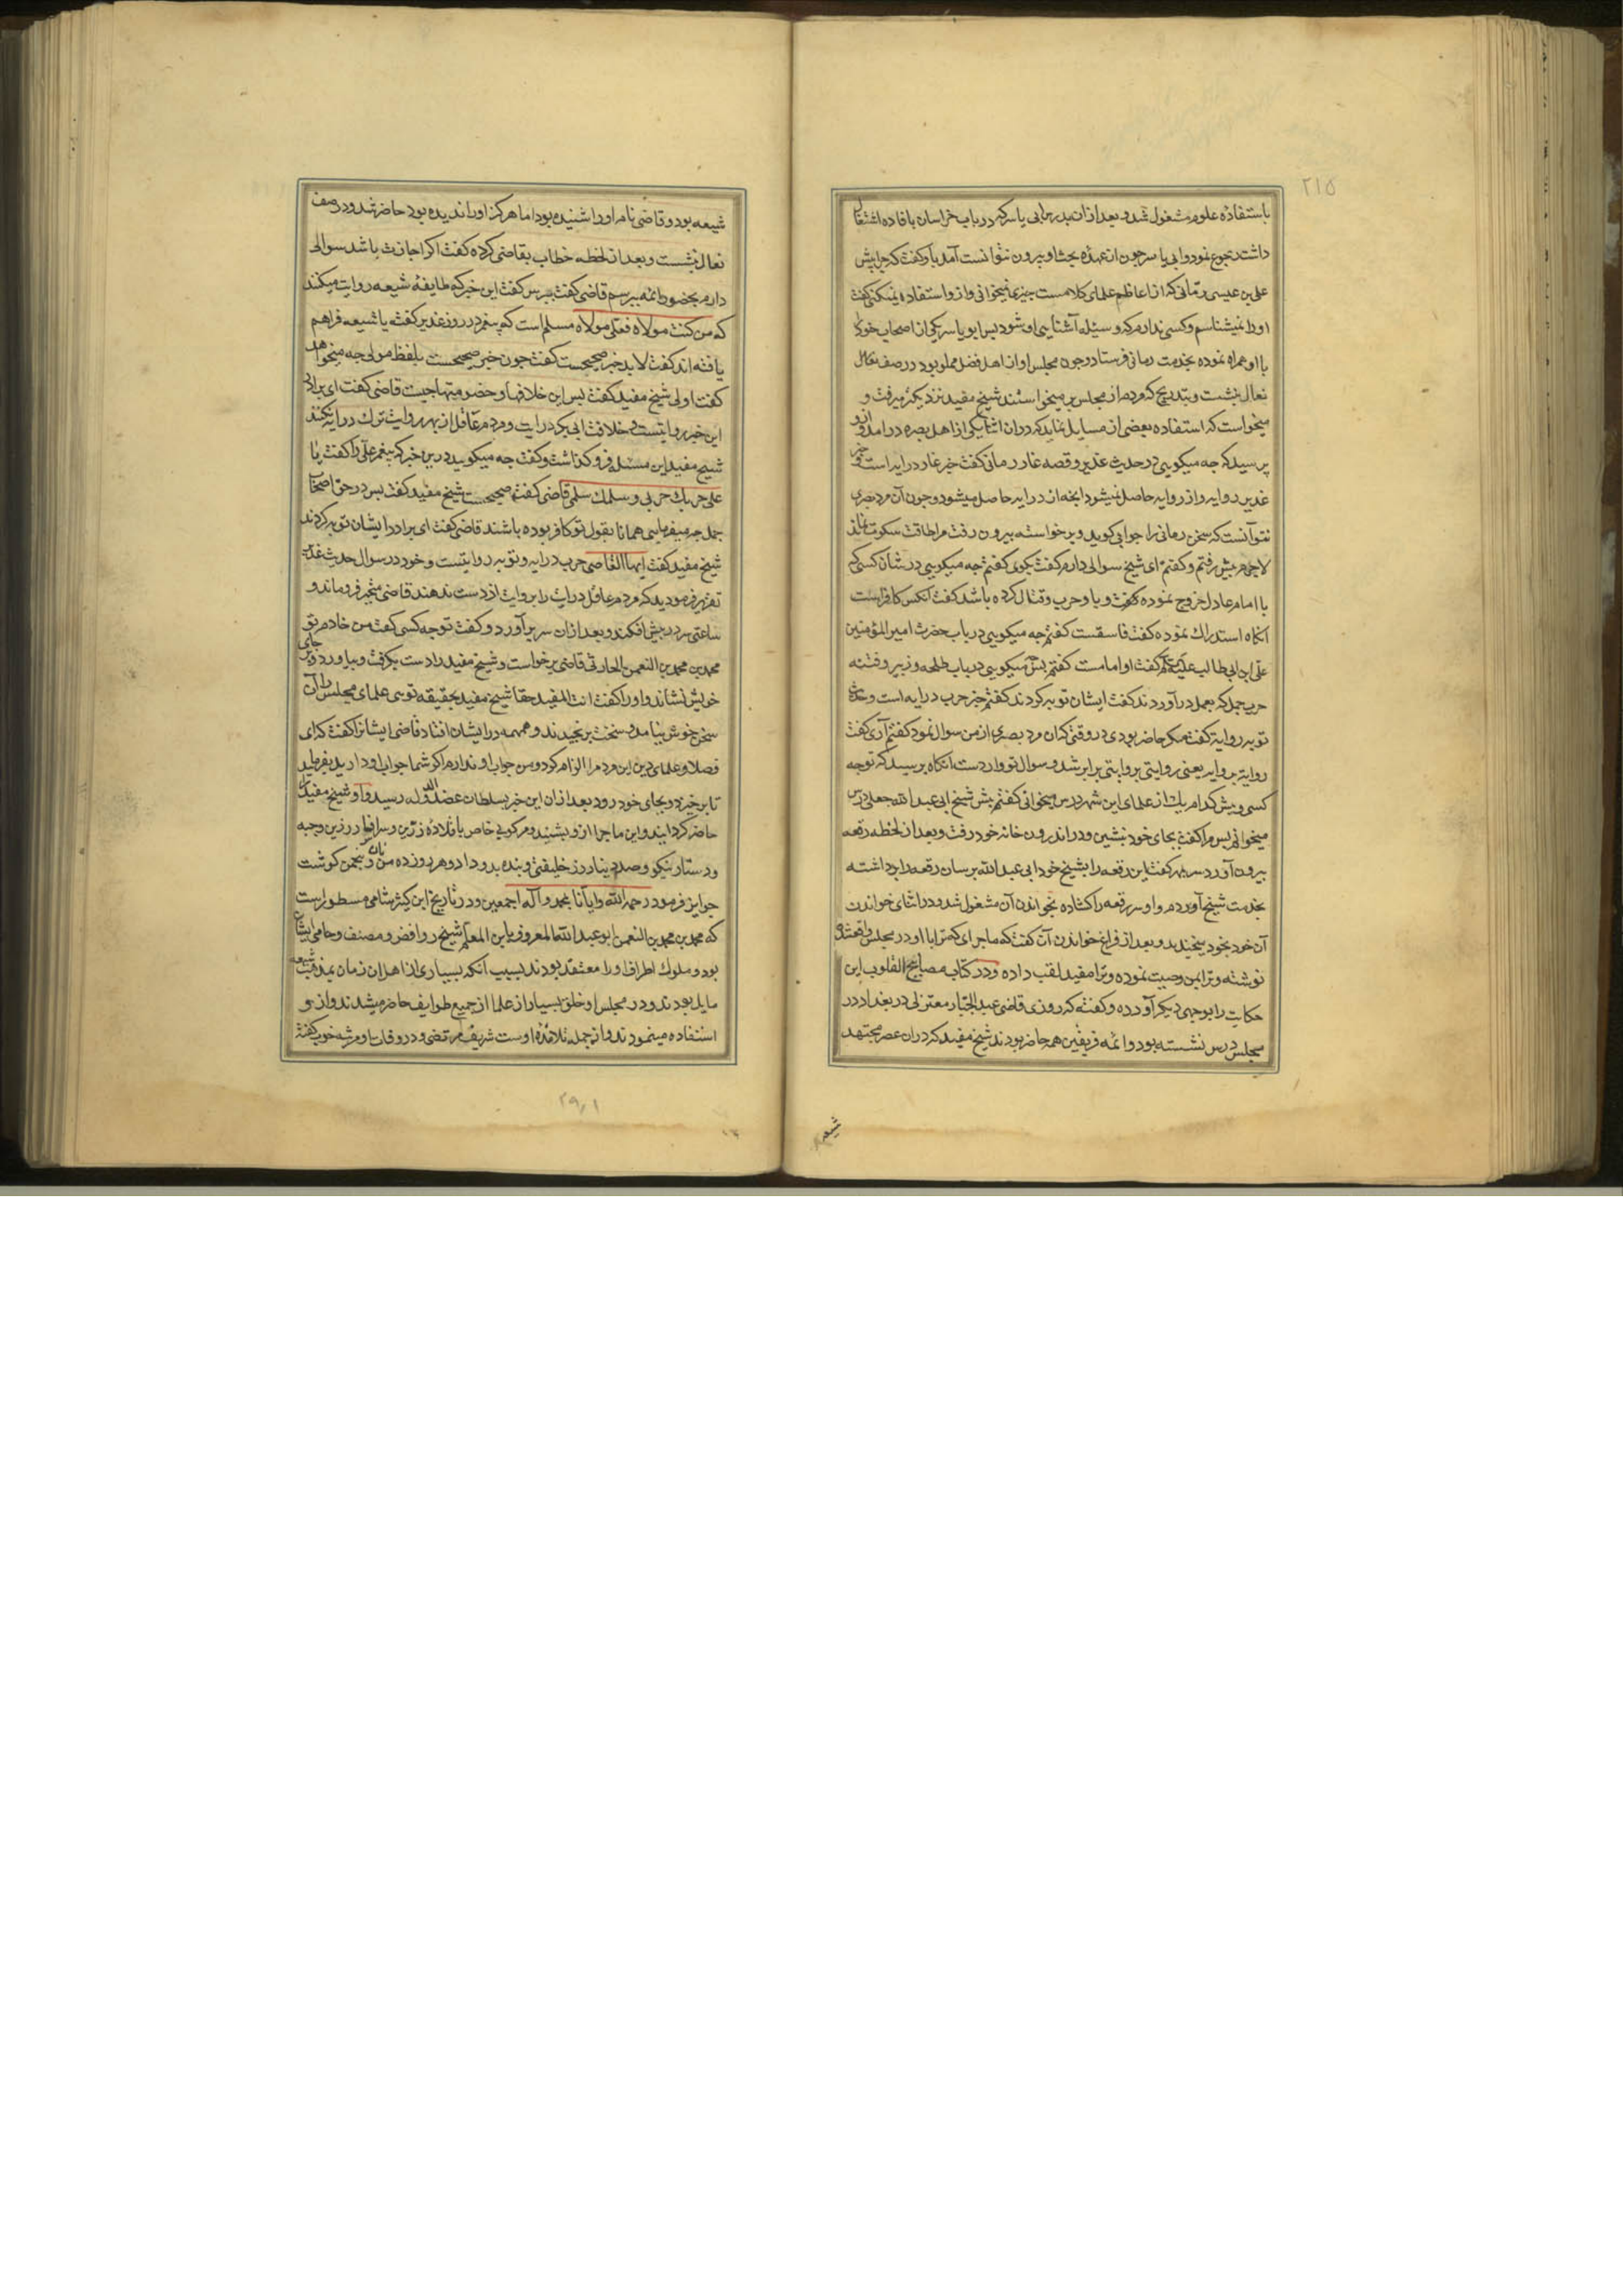 ٢١٥
باستفاده علوم مشغول شد و بعد از آن بدرس ابی یاسر که در باب خراسان بافاده اشتغال
داشت رجوع نمود و ابی یاسر چون از عهدهٔ بحث او بیرون نتوانست آمد باو گفت که چرا پیش
علی بن عیسی رمانی که از اعاظم علمای کلامست چیزی نمیخوانی و ازو استفاده نمیکنی گفت
او را نمیشناسم و کسی ندارم که وسیله آشنایی او شود پس ابو یاسر یکی از اصحاب خود را
با او همراه نموده بخدمت رمانی فرستاد و چون مجلس او از اهل فضل مملو بود در صف نعال
نعال بنشست و بتدریج که مردم از مجلس بر میخواستند شیخ مفید نزدیکتر میرفت و
میخواست که استفاده بعضی از مسایل نماید که در آن اثنا یکی از اهل بصره در آمد و ازو
پرسید که چه میکویی در حدیث غدیر و قصه غار رمانی کفت خبر غار درایه است و خبر
غدیر روایه و از روایه حاصل نمیشود آنچه از درایه حاصل میشود و چون آن مرد بصری
نتوانست که سخن رمانی را جوابی کوید و بر خواسته بیرون رفت مرا طاقت سکوت نماند
لاجرم پیش رفتم و کفتم ای شیخ سوالی دارم کفت بکوی کفتم چه میکویی در شان کسی که
با امام عادل خروج نموده و با او حرب و قتال کرده باشد کفت آنکس کافر است
آنکاه استدراک نموده کفت فاسقست کفتم چه میکویی در باب حضرت امیر المؤمنین
علی ابن ابی طالب علیه کفت او امامست کفتم پس چه میکویی در باب طلحه و زبیر و فتنه
حرب جمل که بعمل در آوردند کفت ایشان توبه کردند کفتم خبر حرب درایه است و حدیث
توبه روایة کفت مکر حاضر بودی در وقتی که آن مرد بصری از من سوال نمود کفتم آری کفت
روایة بروایه یعنی روایتی بروایتی برابر شد و سوال تو وارد است آنکاه پرسید که تو چه
کسی و پیش کدام یک از علمای این شهر درس میخوانی کفتم پیش شیخ ابی عبد الله جعلی درس
میخوانم پس مرا کفت بجای خود بنشین و در اندرون خانه خود رفت و بعد از لحظه رقعه
بیرون آورد سر بمهر کفت این رقعه را بشیخ خود ابی عبد الله برسان رقعه را برداشته
بخدمت شیخ آوردم و او سر رقعه را کشاده بخواندن آن مشغول شد و در اثنای خواندن
آن خود بخود میخندید و بعد از فراغ خواندن آن کفت که ماجرای که ترا با او در مجلس واقع شد
نوشته و ترا بمن وصیت نموده و ترا مفید لقب داده و در کتاب مصابیح القلوب این
حکایت را بوجهی دیکر آورده و کفته که روزی قاضی عبد الجبار معتزلی در بغداد در
مجلس درس نشسته بود و ائمه فریقین همه حاضر بودند شیخ مفید که در آن عصر مجتهد
شیعه
شیعه بود و قاضی نام او را شنیده بود اما هرکز او را ندیده بود حاضر شد و در صف
نعال بنشست و بعد از لحظه خطاب بقاضی کرده کفت اکر اجازت باشد سوالی
دارم بحضور ائمه بپرسم قاضی کفت بپرس کفت این خبر که طایفه شیعه روایت میکنند
که من کنت مولاه فعلی مولاه مسلم است که پیغمبر در روز غدیر کفته یا شیعه فراهم
یافته اند کفت لابد خبر صحیحست کفت چون خبر صحیحست بلفظ مولی چه میخواهد
کفت اولی شیخ مفید کفت پس این خلافها و خصومتها چیست قاضی کفت ای برادر
این خبر روایتست و خلافت ابی بکر درایت و مردم عاقل از بهر روایت ترک درایه نکند
شیخ مفید این مسئله فرو کذاشت و کفت چه میکویید درین خبر که پیغمبر علی را کفت یا
علی حربک حربی و سلمک سلمی قاضی کفت صحیحست شیخ مفید کفت پس در حق اصحاب
جمل چه میفرمایی همانا بقول تو کافر بوده باشند قاضی کفت ای برادر ایشان توبه کردند
شیخ مفید کفت ایها القاضی حرب درایه و توبه روایتست و خود در سوال حدیث غدیر
تقریر فرمودید که مردم عاقل درایت را بروایت از دست ندهند قاضی متحیر فرو ماند و
ساعتی سر در پیش افکند و بعد از آن سر بر آورد و کفت تو چه کسی کفت من خادم تو
محمد بن محمد بن النعمن الحارثی قاضی برخواست و شیخ مفید را دست بکرفت و بیاورد و بر جای
خویش نشاند و او را کفت انت المفید حقا شیخ مفید بحقیقه تویی علمای مجلس را آن
سخن خوش نیامد و سخت برنجیدند و همهمه در ایشان افتاد قاضی ایشانرا کفت که ای
فضلا و علمای دین این مرد مرا الزام کرد و من جواب او ندارم اکر شما جواب او دارید بفرمایید
تا برخیزد و بجای خود رود بعد از آن این خبر بسلطان عضد الدوله رسید و او شیخ مفید را
حاضر کردانید و این ماجرا ازو بشنید و مرکوبی خاص با قلاده زرین و سرافسار زرین و جبه
و دستار نیکو و صد دینار زر خلیفتی و بنده بدو داد و هر روز ده من نان و پنج من کوشت
جوایز فرمود رحمه الله و ایانا بمحمد و آله اجمعین و در تاریخ ابن کثیر شامی مسطور است
که محمد بن محمد بن النعمن ابو عبد الله المعروف بابن المعلم شیخ روافض و مصنف و حامی ایشان
بود و ملوک اطراف او را معتقد بودند بسبب آنکه بسیاری از اهل آن زمان بمذهب شیعه
مایل بودند و در مجلس او خلق بسیار از علما از جمیع طوایف حاضر میشدند و ازو
استفاده مینمودند و از جمله تلامذه اوست شریف مرتضی و در وفات او مرثیه خوب کفته
٢٩٫١